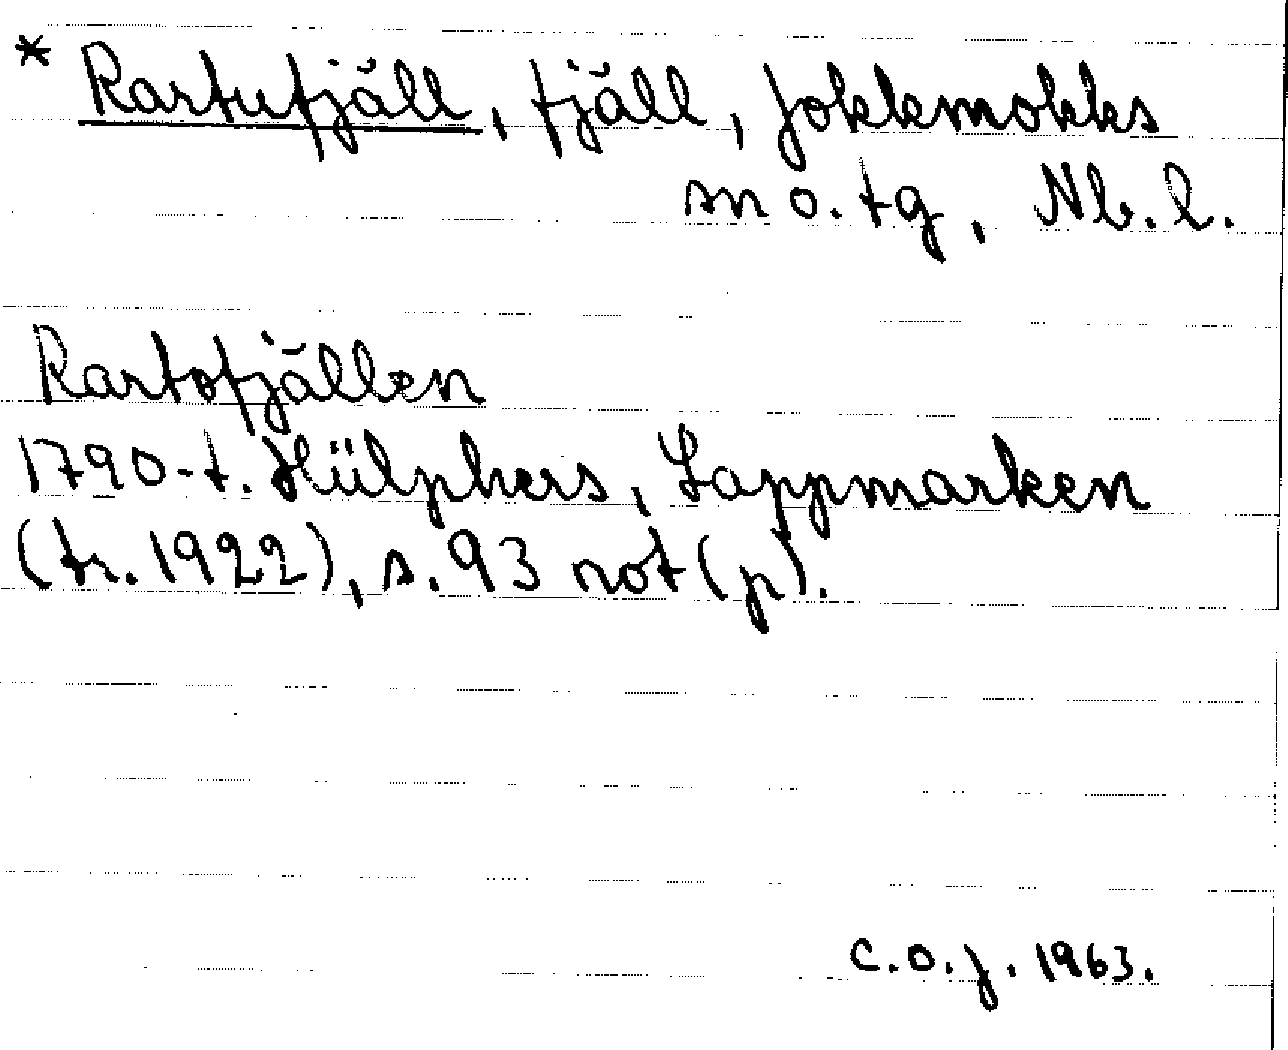 * Rartufjäll, fjäll, Jokkmokks
sn o. tg, Nb. l.
Rartofjällen
1790-t. Hülphers, Lappmarken
(tr. 1922), s. 93 not (p).
C.O.J. 1963.